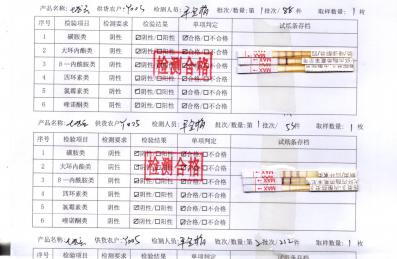 产品名称: 供货农户:Y005 检测人员: 批次/数量:第1批次/58件 取样数量:1枚
序号 检验项目 检测要求 检验结果 单项判定 试纸条存档
1 磺胺类 阴性 ☑阴性/□阳性 ☑合格/□不合格
2 大环内酯类 阴性 ☑阴性/□阳性 ☑合格/□不合格
3 β-内酰胺类 阴性 ☑阴性/□阳性 ☑合格/□不合格
4 四环素类 阴性 ☑阴性/□阳性 ☑合格/□不合格
5 氯霉素类 阴性 ☑阴性/□阳性 ☑合格/□不合格
6 喹诺酮类 阴性 ☑阴性/□阳性 ☑合格/□不合格
检测合格
MAX
MAX
产品名称: 供货农户:Y025 检测人员: 批次/数量:第1批次/55件 取样数量:1枚
序号 检验项目 检测要求 检验结果 单项判定 试纸条存档
1 磺胺类 阴性 ☑阴性/□阳性 ☑合格/□不合格
2 大环内酯类 阴性 ☑阴性/□阳性 ☑合格/□不合格
3 β-内酰胺类 阴性 ☑阴性/□阳性 ☑合格/□不合格
4 四环素类 阴性 ☑阴性/□阳性 ☑合格/□不合格
5 氯霉素类 阴性 ☑阴性/□阳性 ☑合格/□不合格
6 喹诺酮类 阴性 ☑阴性/□阳性 ☑合格/□不合格
检测合格
MAX
MAX
产品名称: 供货农户:Y005 检测人员: 批次/数量:第 批次/212件 取样数量:1枚